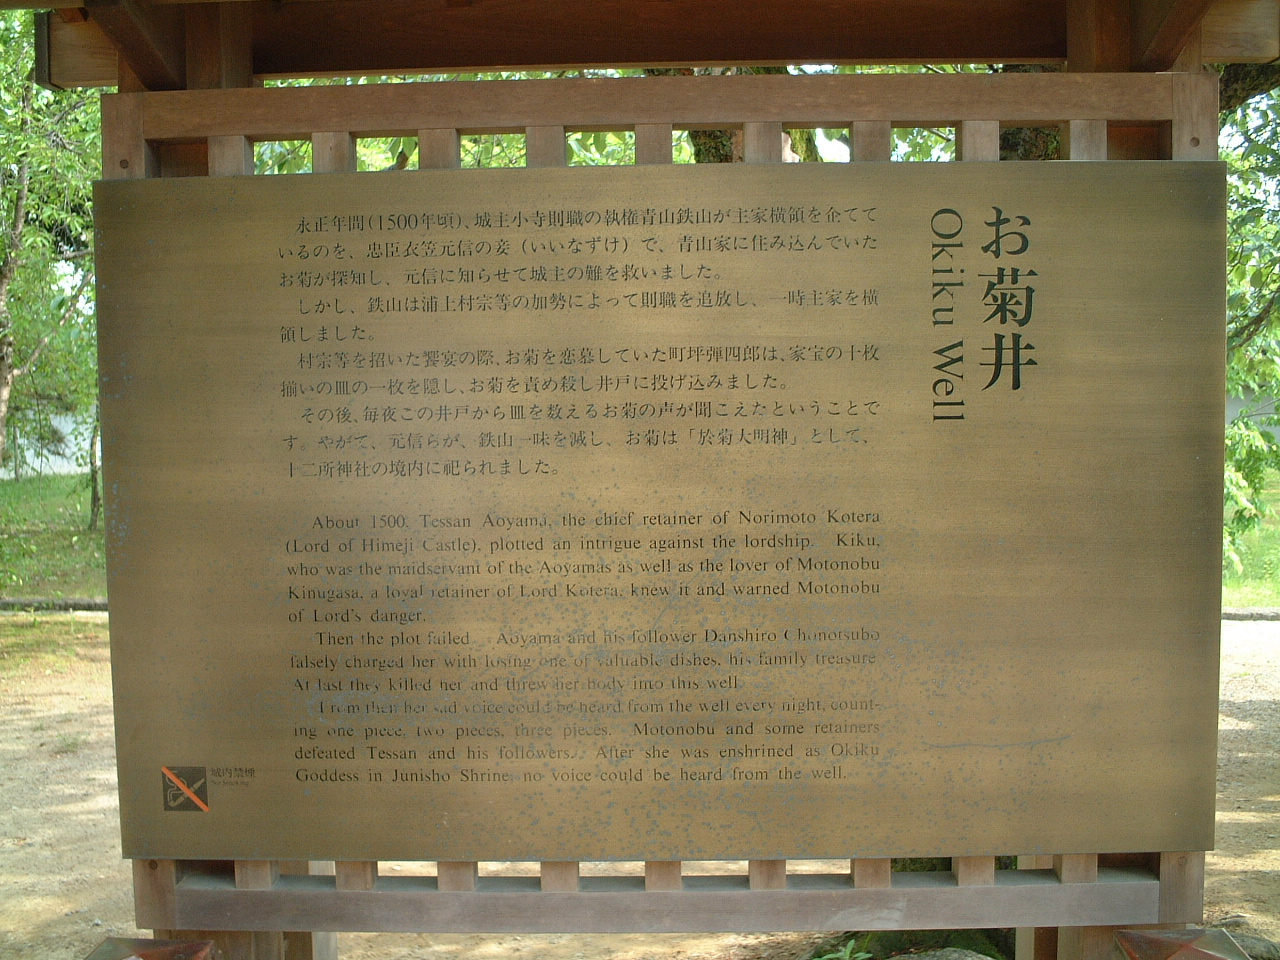 お菊井
Okiku Well
永正年間(1500年頃)、城主小寺則職の執権青山鉄山が主家横領を企てて
いるのを、忠臣衣笠元信の妾(いいなずけ)で、青山家に住み込んでいた
お菊が探知し、元信に知らせて城主の難を救いました。
しかし、鉄山は浦上村宗等の加勢によって則職を追放し、一時主家を横
領しました。
村宗等を招いた饗宴の際、お菊を恋慕していた町坪弾四郎は、家宝の十枚
揃いの皿の一枚を隠し、お菊を責め殺し井戸に投げ込みました。
その後、毎夜この井戸から皿を数えるお菊の声が聞こえたということで
す。やがて、元信らが、鉄山一味を滅し、お菊は「於菊大明神」として、
十二所神社の境内に祀られました。
About 1500, Tessan Aoyama, the chief retainer of Norimoto Kotera
(Lord of Himeji Castle), plotted an intrigue against the lordship. Kiku,
who was the maidservant of the Aoyamas as well as the lover of Motonobu
Kinugasa, a loyal retainer of Lord Kotera, knew it and warned Motonobu
of Lord's danger.
Then the plot failed. Aoyama and his follower Danshiro Chonotsubo
falsely charged her with losing one of valuable dishes, his family treasure
At last they killed her and threw her body into this well
From then her sad voice could be heard from the well every night, count-
ing one piece, two pieces, three pieces. Motonobu and some retainers
defeated Tessan and his followers. After she was enshrined as Okiku
Goddess in Junisho Shrine, no voice could be heard from the well.
城内禁煙
No Smoking